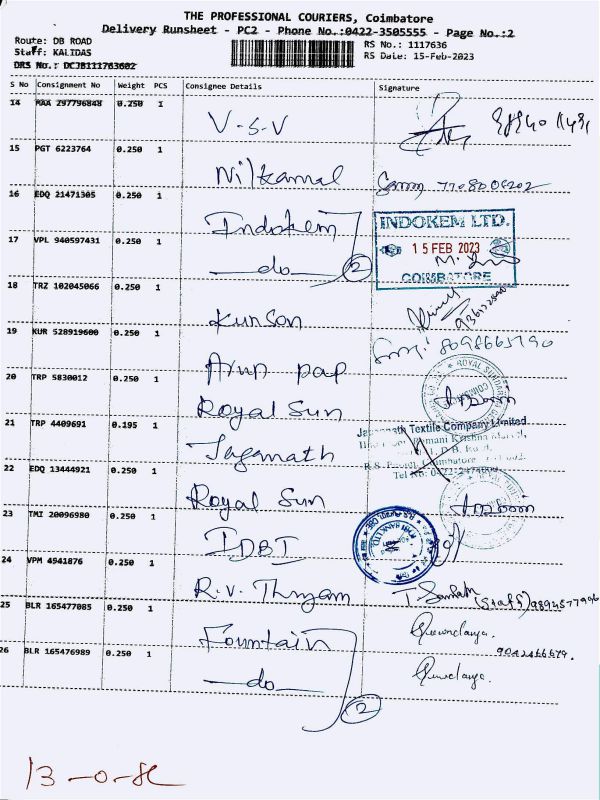 THE PROFESSIONAL COURIERS, Coimbatore
Delivery Runsheet - PC2 - Phone No.:0422-3505555 - Page No.:2
Route: DB ROAD
RS No.: 1117636
Staff: KALIDAS
RS Date: 15-Feb-2023
DRS No.: DCJB111763602
S No Consignment No Weight PCS Consignee Details Signature
14 MAA 297796848 0.250 1 V-S-V
15 PGT 6223764 0.250 1 Nilkamal
16 EDQ 21471305 0.250 1 Indokem
INDOKEM LTD.
15 FEB 2023
COIMBATORE
17 VPL 940597431 0.250 1 —do— 2
18 TRZ 102045066 0.250 1 Kunson
19 KUR 528919600 0.250 1 Arun pap
8098665790
20 TRP 5830012 0.250 1 Royal Sun
21 TRP 4409691 0.195 1 Jaganath
Textile Company Limited
22 EDQ 13444921 0.250 1 Royal Sun
23 TMI 20096980 0.250 1 IDBI
24 VPM 4941876 0.250 1 R.V. Thyam
(Staff)
25 BLR 165477085 0.250 1 Fountain
26 BLR 165476989 0.250 1 —do— 2
9042466679.
13-0-